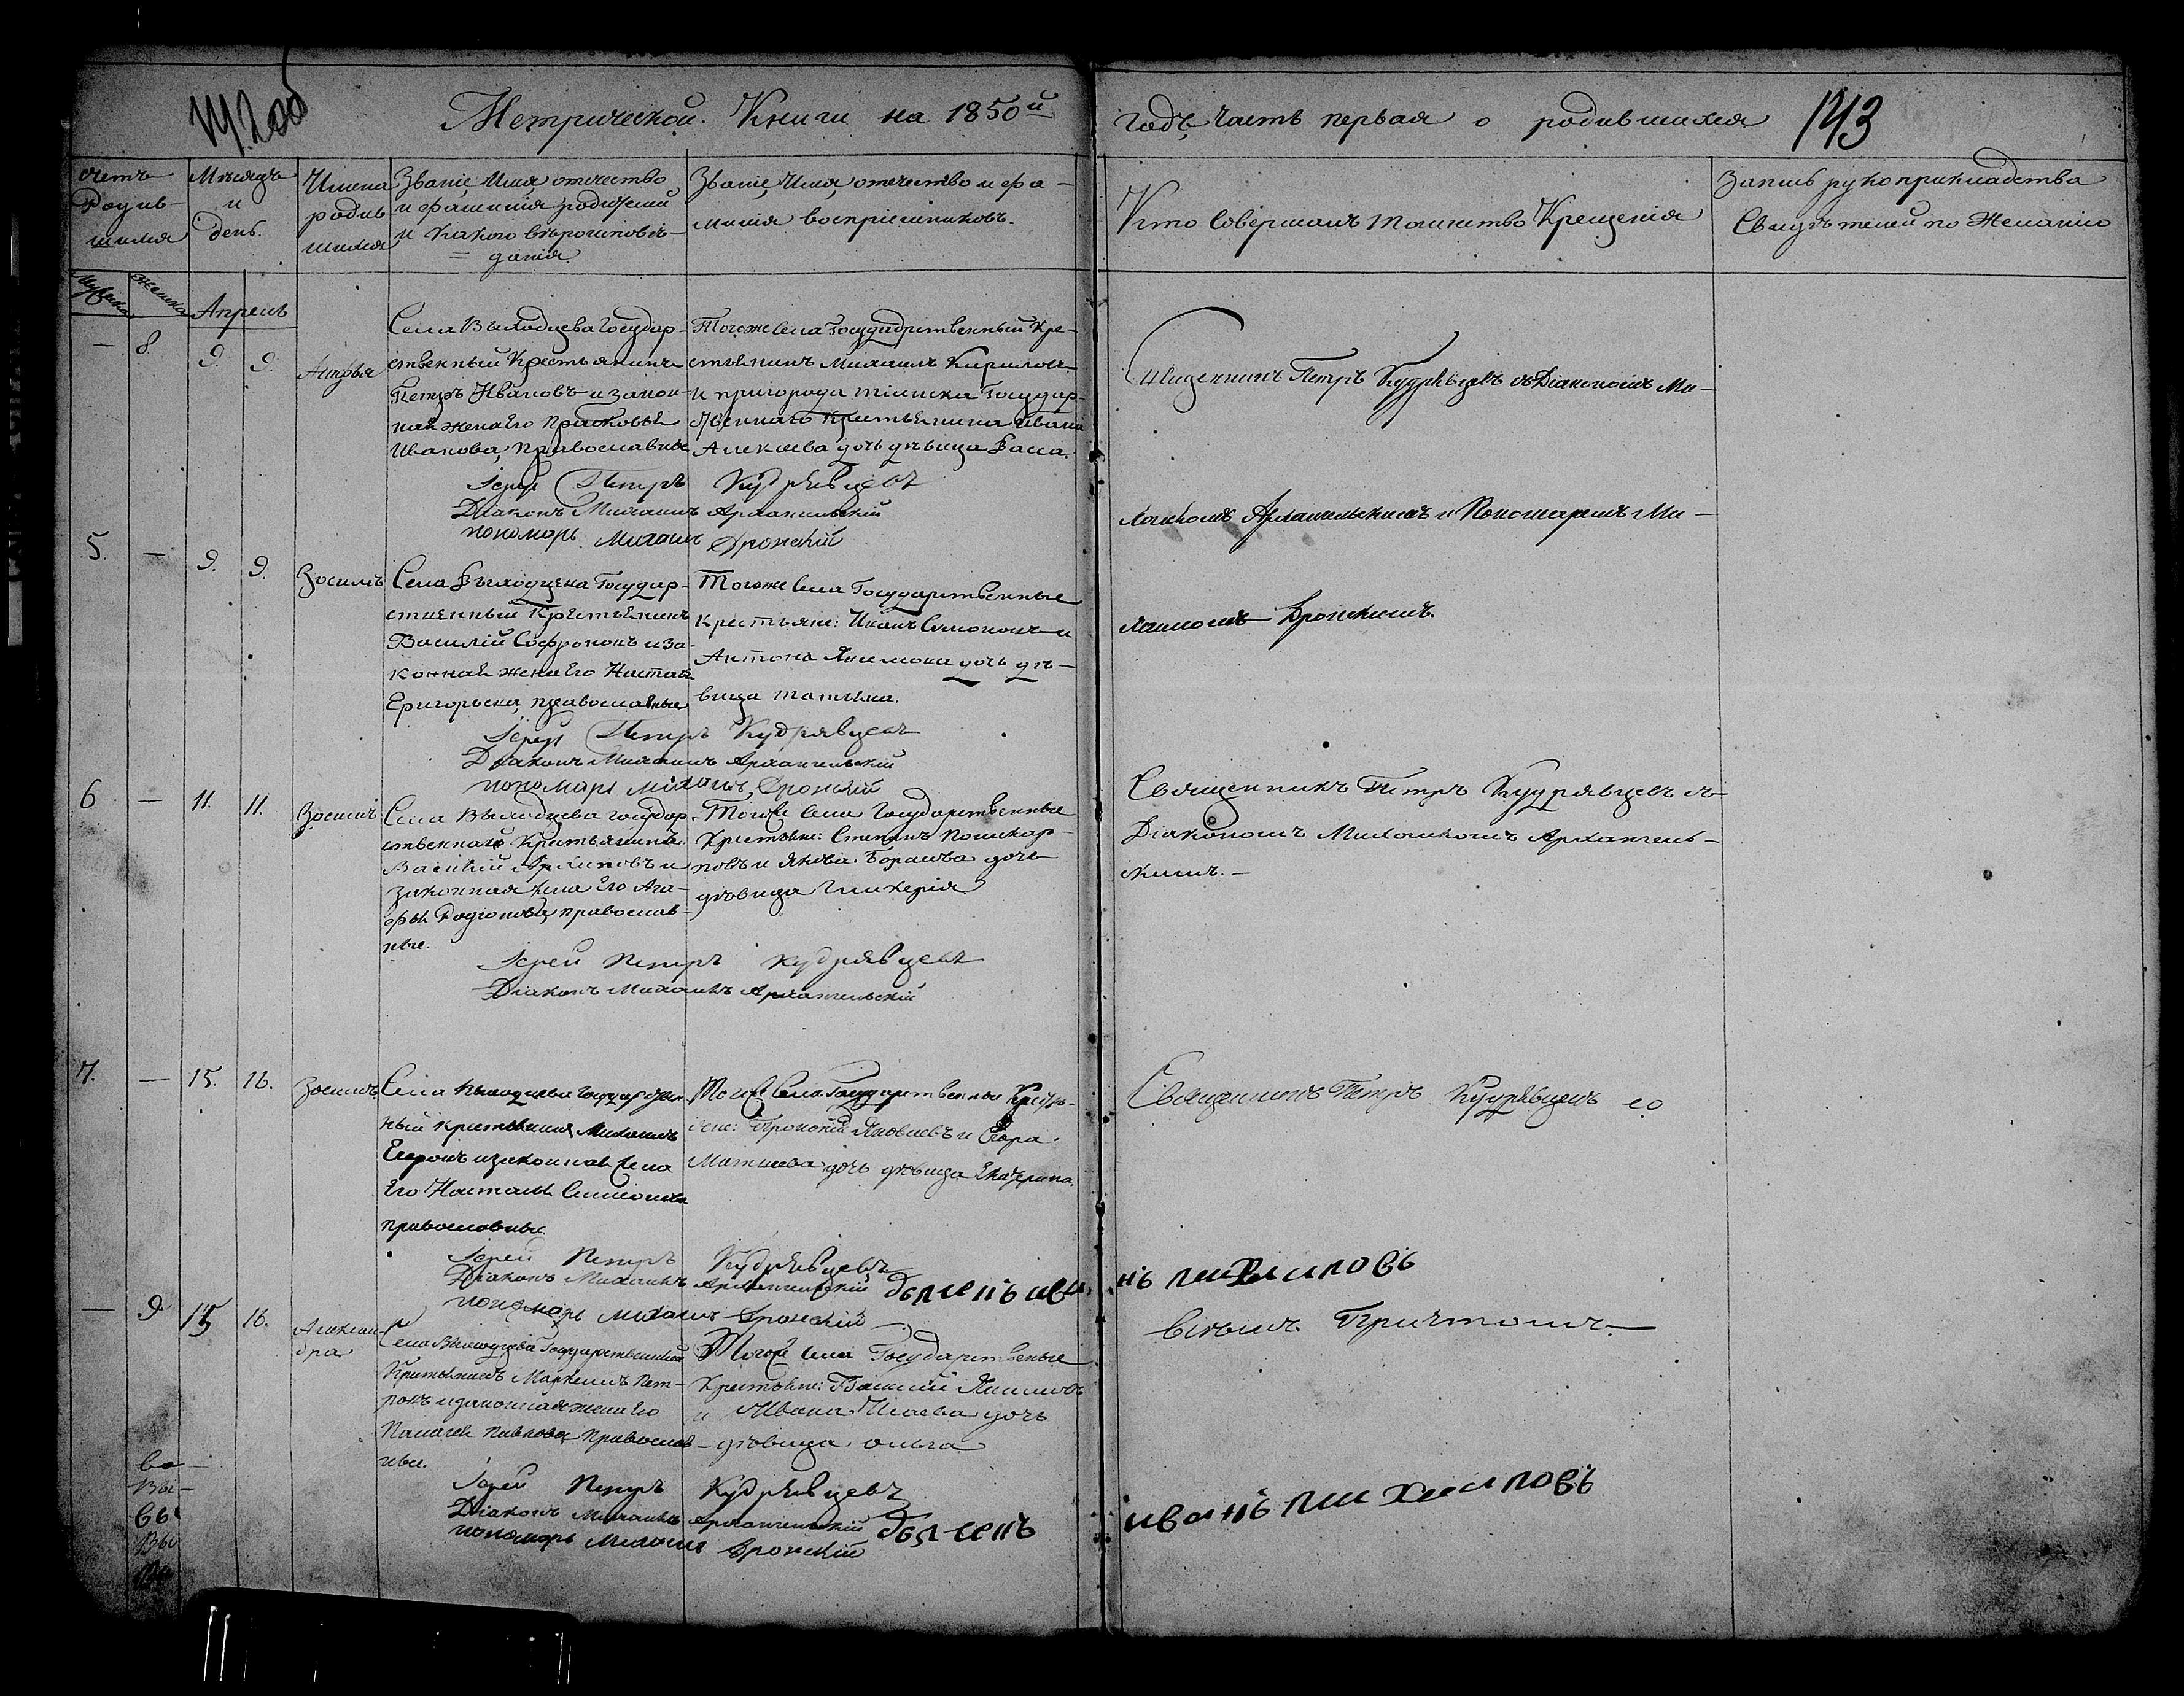 Метрической Книги на 1850й годъ Часть первая о родившихся 143
Счетъ родив-шихся
Мѣсяцъ и день.
Имена родив шихся
Званіе, Имя, отчество и фамилія родителей и какого вѣроисповѣ-данія.
Званіе, Имя, отечество и фа-милія воспріемниковъ.
Кто Совершалъ таинство Крещенія
Запись рукоприкладства Свидѣтелей по Желанію
Апрель
— 8. 9. 9.
Села Выходцева Государ-
ственный Крестьянинъ
Петръ Ивановъ и закон-
ная жена Его Прасковья
Иванова, православные
Тогоже Села Государственный Кре-
стьянинъ Михаилъ Кириловъ
и пригорода Государ-
ственнаго Крестьянина Ивана
Алексеева дочь дѣвица Васса.
Священникъ Петръ Кудрявцевъ съ Діакономъ Ми-
хаиломъ Архангельскимъ и Пономаремъ Ми-
хаиломъ Дронскимъ.
Іерей Петръ Кудрявцевъ
Діаконъ Михаилъ Архангельскій
пономарь Михаилъ Дронскій
5. — 9. 9. Зосимъ
Села Выходцева Государ-
ственный Крестьянинъ
Василій Софроновъ и За-
конная жена Его Настас
Григорьева, православные
Тогоже Села Государственные
крестьяне: Иванъ Симоновъ и
Антона Якимова дочь дѣ-
вица татьяна.
Іерей Петръ Кудрявцевъ
Діаконъ Михаилъ Архангельскій
пономарь Михаилъ Дронскій
6 — 11. 11. Зосимъ
Села Выходцева государ-
ственнаго Крестьянина
Василий Архиповъ и
законная жена Его Ага-
фья Родіонова, православ-
ные.
Тогоже села Государственные
Крестьяне: Степанъ Поликар-
повъ и Якова дочь
дѣвица Гликерія
Священникъ Петръ Кудрявцевъ съ
Діакономъ Михаиломъ Архангель-
скимъ. —
Іерей Петръ Кудрявцевъ
Діаконъ Михаилъ Архангельскій
7. — 15. 16. Зосимъ
Села Выходцева Государствен-
ный крестьянинъ Михаилъ
и законная жена
Его Настасья Симонова
православные.
Тогоже Села Государственные Крестья-
не: Прокопій Яковлевъ и
Матвеева дочь дѣвица Екатерина.
Священникъ Петръ Кудрявцевъ со
всѣмъ Причтомъ. —
Іерей Петръ Кудрявцевъ
Діаконъ Михаилъ Архангельскій
пономарь Михаилъ Дронскій
— 9 15 16. Алексан-
дра
Села Выходцева Государственный
Крестьянинъ Маркелъ Пет-
ровъ и законная жена Его
Пелагея Павлова, православ-
ные.
Тогоже села Государственные
Крестьяне: Василий
и Ивана Исаева дочь
дѣвица Ольга
Іерей Петръ Кудрявцевъ
Діаконъ Михаилъ Архангельскій
пономарь Михаилъ Дронскій